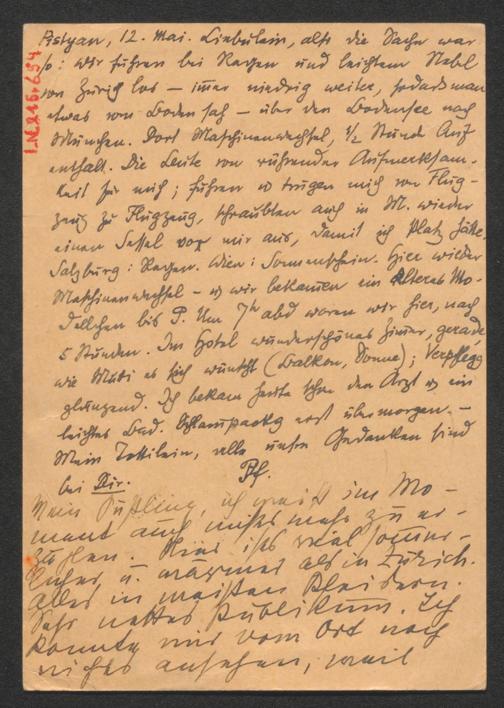 Pistyan, 12. Mai. Liebulein, also die Sache war
so: wir fuhren bei Regen und leichtem Nebel
von Zürich los – immer niedrig weiter, sodass man
etwas vom Boden sah – über den Bodensee nach
München. Dort Maschinenwechsel, ½ Stunde Auf-
enthalt. Die Leute von rührender Aufmerksam-
keit für mich; führen u trugen mich von Flug-
zeug zu Flugzeug, schraubten auch in M. wieder
einen Sessel vor mir aus, damit ich Platz hätte.
Salzburg: Regen. Wien: Sonnenschein. Hier wieder
Maschinenwechsel – u wir bekamen ein älteres Mo-
dellchen bis P. Um 7h abd waren wir hier, nach
5 Stunden. Im Hotel wunderschönes Zimmer, gerade
wie Mutti es sich wünscht (Balkon, Sonne); Verpflegg
glänzend. Ich bekam heute schon den Arzt u ein
leichtes Bad. Schlammpackg erst übermorgen. –
Mein Tottilein, alle unsre Gedanken sind
bei Dir. Pf.
Mein ich weiß im Mo-
ment auch nichts mehr zu er-
zählen. Hier ists viel sommer-
licher u. wärmer als in Zürich.
Alles in weißen Kleidern.
Sehr nettes Publikum. Ich
konnte mir vom Ort noch
nichts ansehen, weil
I.N. 216.654